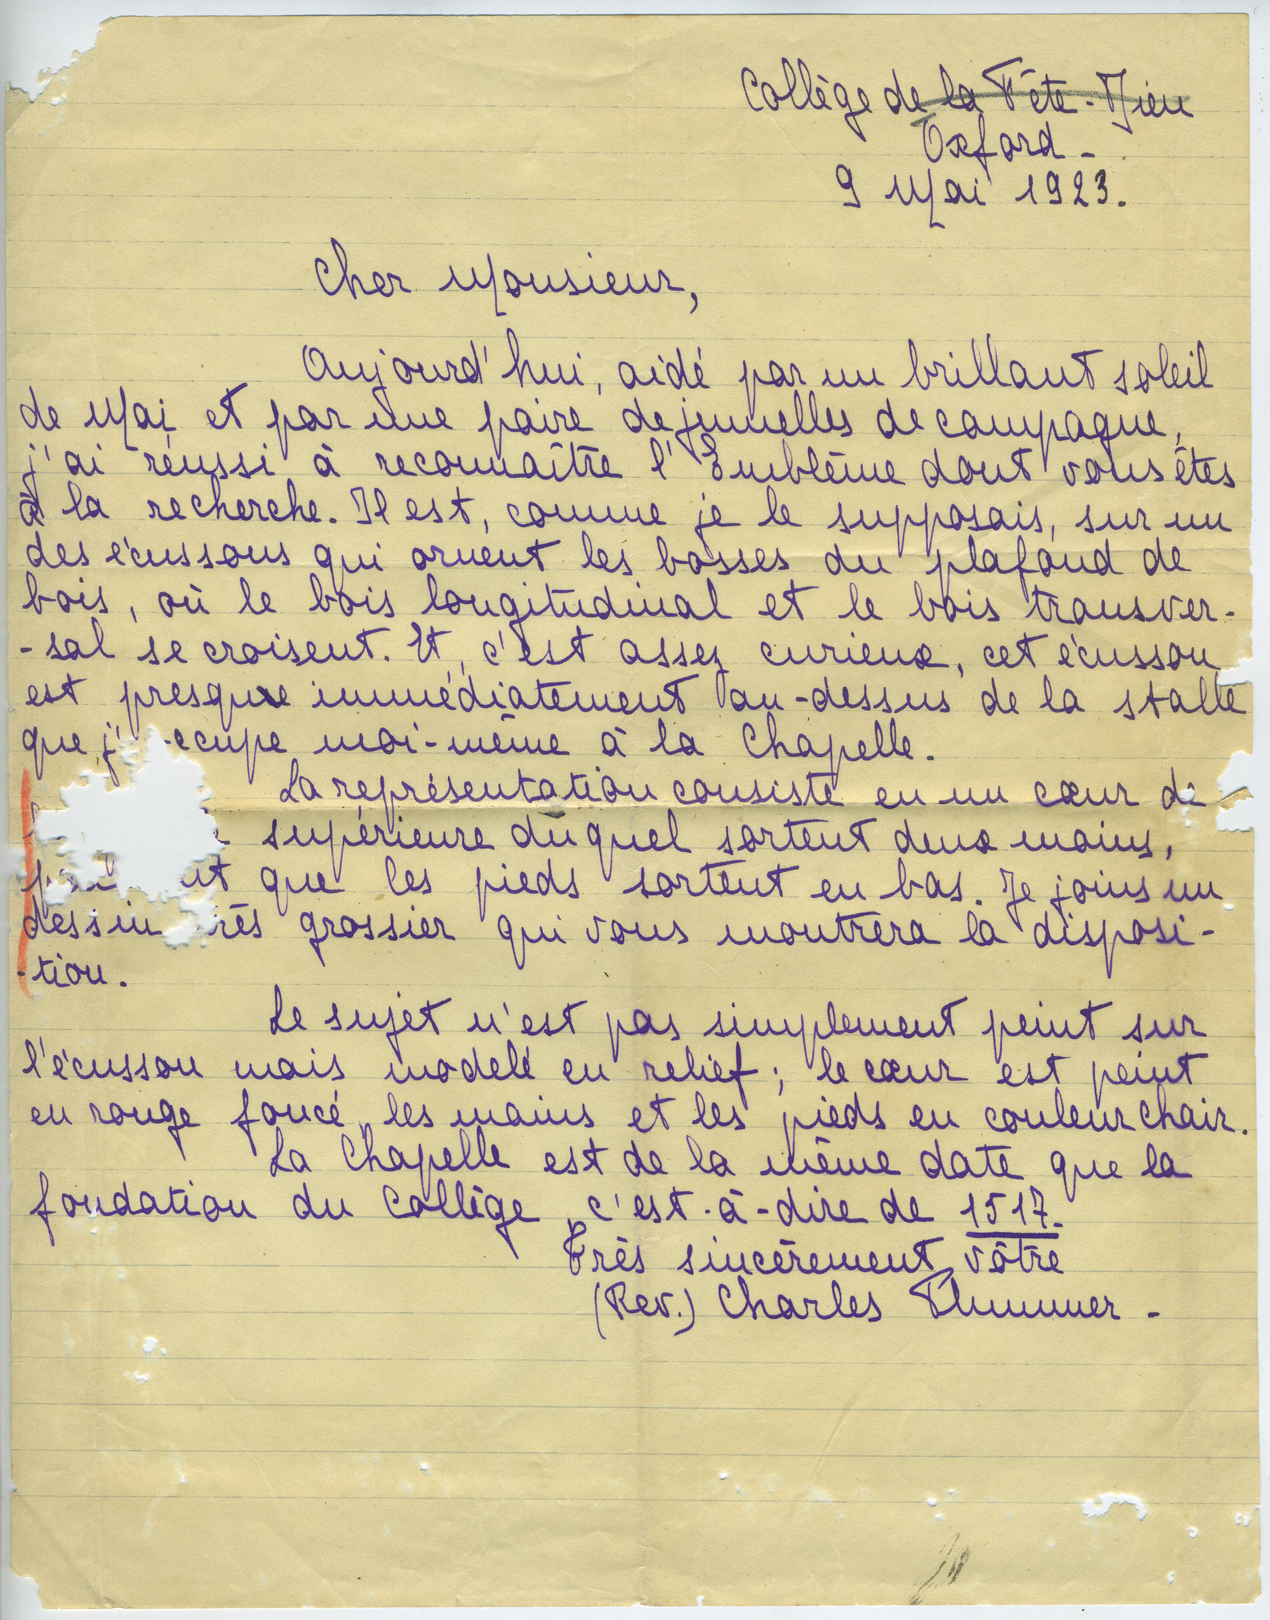 Collège de la Fête-Dieu
Oxford -
9 Mai 1923.
Cher Monsieur,
Aujourd'hui, aidé par un brillant soleil
de Mai et par une paire de jumelles de campagne,
j'ai réussi à reconnaître l'Emblème dont vous êtes
à la recherche. Il est, comme je le supposais, sur un
des écussons qui ornent les bosses du plafond de
bois, où le bois longitudinal et le bois transver-
-sal se croisent. Et, c'est assez curieux, cet écusson
est presque immédiatement au-dessus de la stalle
que j' ccupe moi-même à la Chapelle.
La représentation consiste en un cœur de
supérieure duquel sortent deux mains,
nt que les pieds sortent en bas. Je joins un
dessin rès grossier qui vous montrera la disposi-
-tion.
Le sujet n'est pas simplement peint sur
l'écusson mais modelé en relief ; le cœur est peint
en rouge foncé, les mains et les pieds en couleur chair.
La Chapelle est de la même date que la
fondation du Collège, c'est-à-dire de 1517.
Très sincèrement vôtre
(Rev.) Charles Plummer -